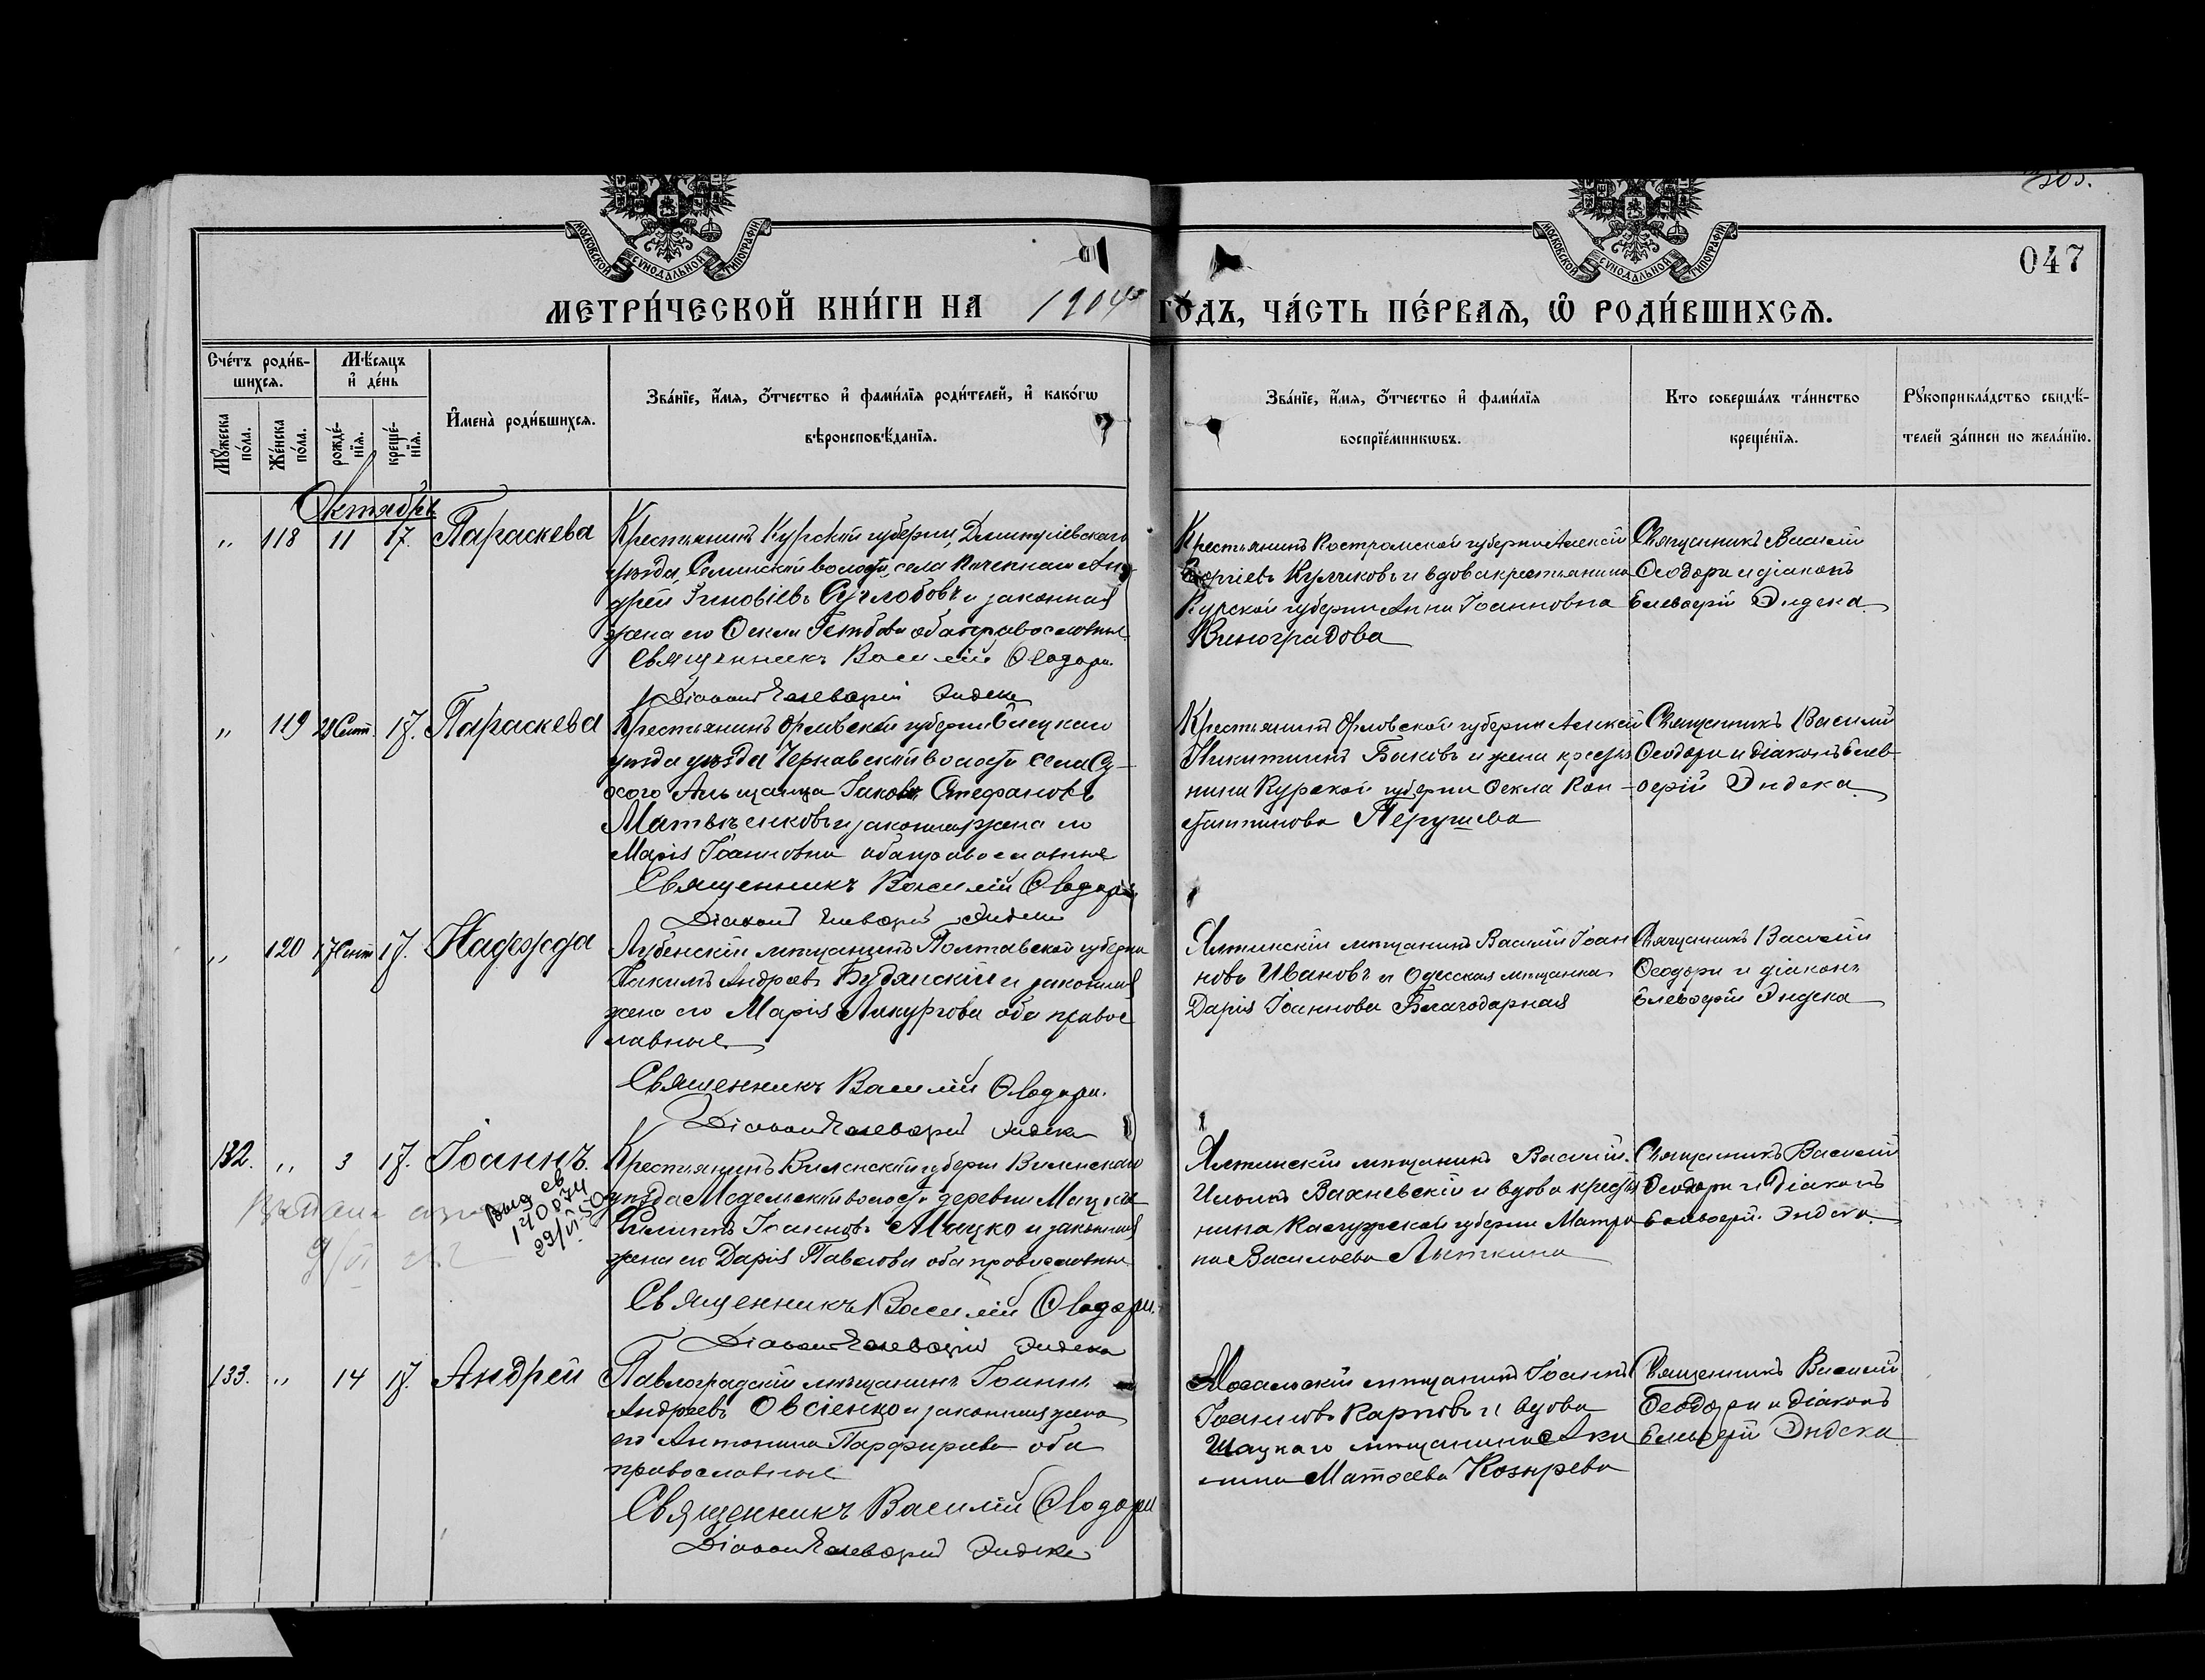 303.
047
МОСКОВСКОЙ СѴНОДАЛЬНОЙ ТИПОГРАФІИ
МОСКОВСКОЙ СѴНОДАЛЬНОЙ ТИПОГРАФІИ
МЕТРИ́ЧЕСКОЙ КНИ́ГИ НА 1904 ГО́ДЪ, ЧА́СТЬ ПЕ́РВАЯ, Ѡ҆ РОДИ́ВШИХСЯ.
Сче́тъ роди́в-
шихся.
Мѣ́сяцъ
и҆ де́нь
Мꙋ́жеска
по́ла.
Же́нска
по́ла.
рожде́-
нїя.
креще́-
нїя.
И҆мена̀ роди́вшихся.
Зва́нїе, и҆́мя, ѻ҆́тчество и҆ фами́лїя роди́телей, и҆ како́гѡ
вѣроисповѣ́данїя.
Зва́нїе, и҆́мя, ѻ҆́тчество и҆ фами́лїя
воспрїе́мникѡвъ.
Кто соверша́лъ та́инство
креще́нїя.
Рꙋкоприкла́дство свидѣ́-
телей за́писи по жела́нїю.
Октябрь
" 118 11 17. Параскева
Крестьянинъ Курской губерніи, Дмитріевскаго
уѣзда, волости, села Ан-
дрей Зиновіевъ и законная
жена его Ѳекла Глѣбова оба православные.
Священникъ Василій Ѳеодори.
Діаконъ Елевѳерій Эндека
Крестьянинъ Костромской губерніи Алексій
Георгіевъ Куликовъ и вдова крестьянина
Курской губерніи Анна Іоанновна
Виноградова
Священникъ Василій
Ѳеодори и діаконъ
Елевѳерій Эндека
" 119 28 Сент. 17. Параскева
Крестьянинъ Орловской губерніи Елецкаго
уѣзда уѣзда Чернавской волости села Су-
хого Ольшанца Іаковъ Стефановъ
и законная жена его
Марія Іоаннова оба православные
Священникъ Василій Ѳеодори
Діаконъ Елевѳерій Эндека
Крестьянинъ Орловской губерніи Алексій
Никитинъ Быковъ и жена крестья
нина Курской губерніи Ѳекла Кон-
стантинова
Священникъ Василій
Ѳеодори и діаконъ Елев-
ѳерій Эндека
" 120 17 Сент 17. Надежда
Лубенскій мѣщанинъ Полтавской губерніи
Іакимъ Андреевъ Будянскій и законная
жена его Марія Ликургова оба правос
лавные.
Священникъ Василій Ѳеодори.
Діаконъ Елевѳерій Эндека
Ялтинскій мѣщанинъ Василій Іоан
новъ Ивановъ и Одесская мѣщанка
Дарія Іоаннова Благодарная
Священникъ Василій
Ѳеодори и діаконъ
Елевѳерій Эндека
132. " 3 17. Іоаннъ.
Выд св
140074
29/VI-50
Крестьянинъ Виленской губерніи Виленскаго
уѣзда Мадельской волости деревни Мацки
Іоанновъ Мацко и законная
жена его Дарія Павлова оба православные
Священникъ Василій Ѳеодори.
Діаконъ Елевѳерій Эндека
Ялтинскій мѣщанинъ Василій
Ильинъ Вахневскій и вдова крестья
нина Калужской губерніи Матро
на Васильева Лыткина
Священникъ Василій
Ѳеодори и діаконъ
Елевѳерій Эндека
133. " 14 17. Андрей
Павлоградскій мѣщанинъ Іоаннъ
Андреевъ Овсіенко и законная жена
его Антонина Парфирьева оба
православные
Священникъ Василій Ѳеодори
Діаконъ Елевѳерій Эндека
Мосальскій мѣщанинъ Іоаннъ
Іоанновъ Карповъ и вдова
Шацкаго мѣщанина Аки
лина Матѳеева Козырева
Священникъ Василій
Ѳеодори и діаконъ
Елевѳерій Эндека